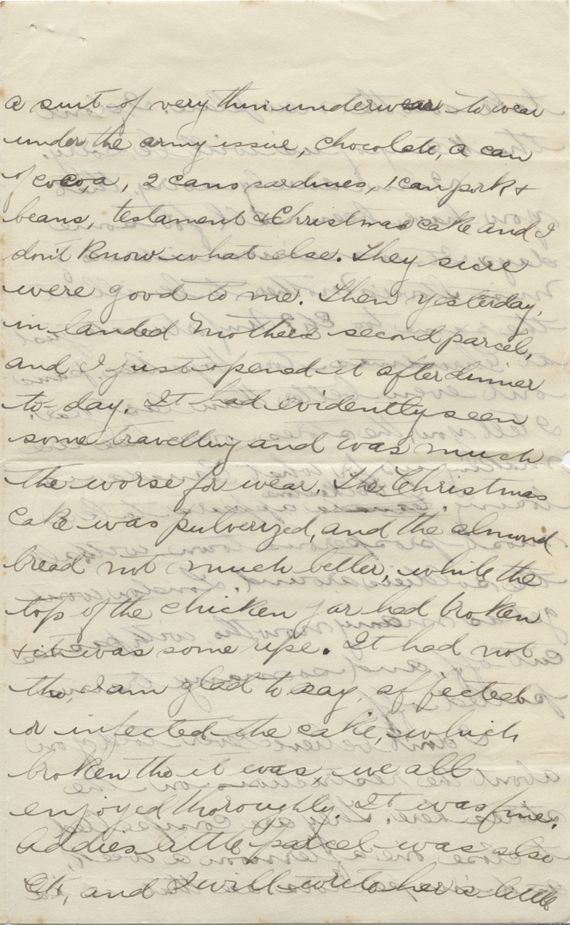 a suit of very thin underwear to wear
under the army issue, chocolate, a can
of cocoa, 2 cans sardines, 1 can pork &
beans, testament & Christmas cake and I
don't know what else. They sure
were good to me. Then yesterday,
in landed Mothers second parcel,
and I just opened it after dinner
to-day. It had evidently seen
some travelling and was much
the worse for wear. The Christmas
cake was pulverized, and the almond
bread not much better, while the
top of the chicken jar had broken
& it was some ripe. It had not
tho, I am glad to say, affected
or infected the cake, which
broken tho it was we all
enjoyed thoroughly. It was fine.
Addies little parcel was also
O.K., and I will write her a little